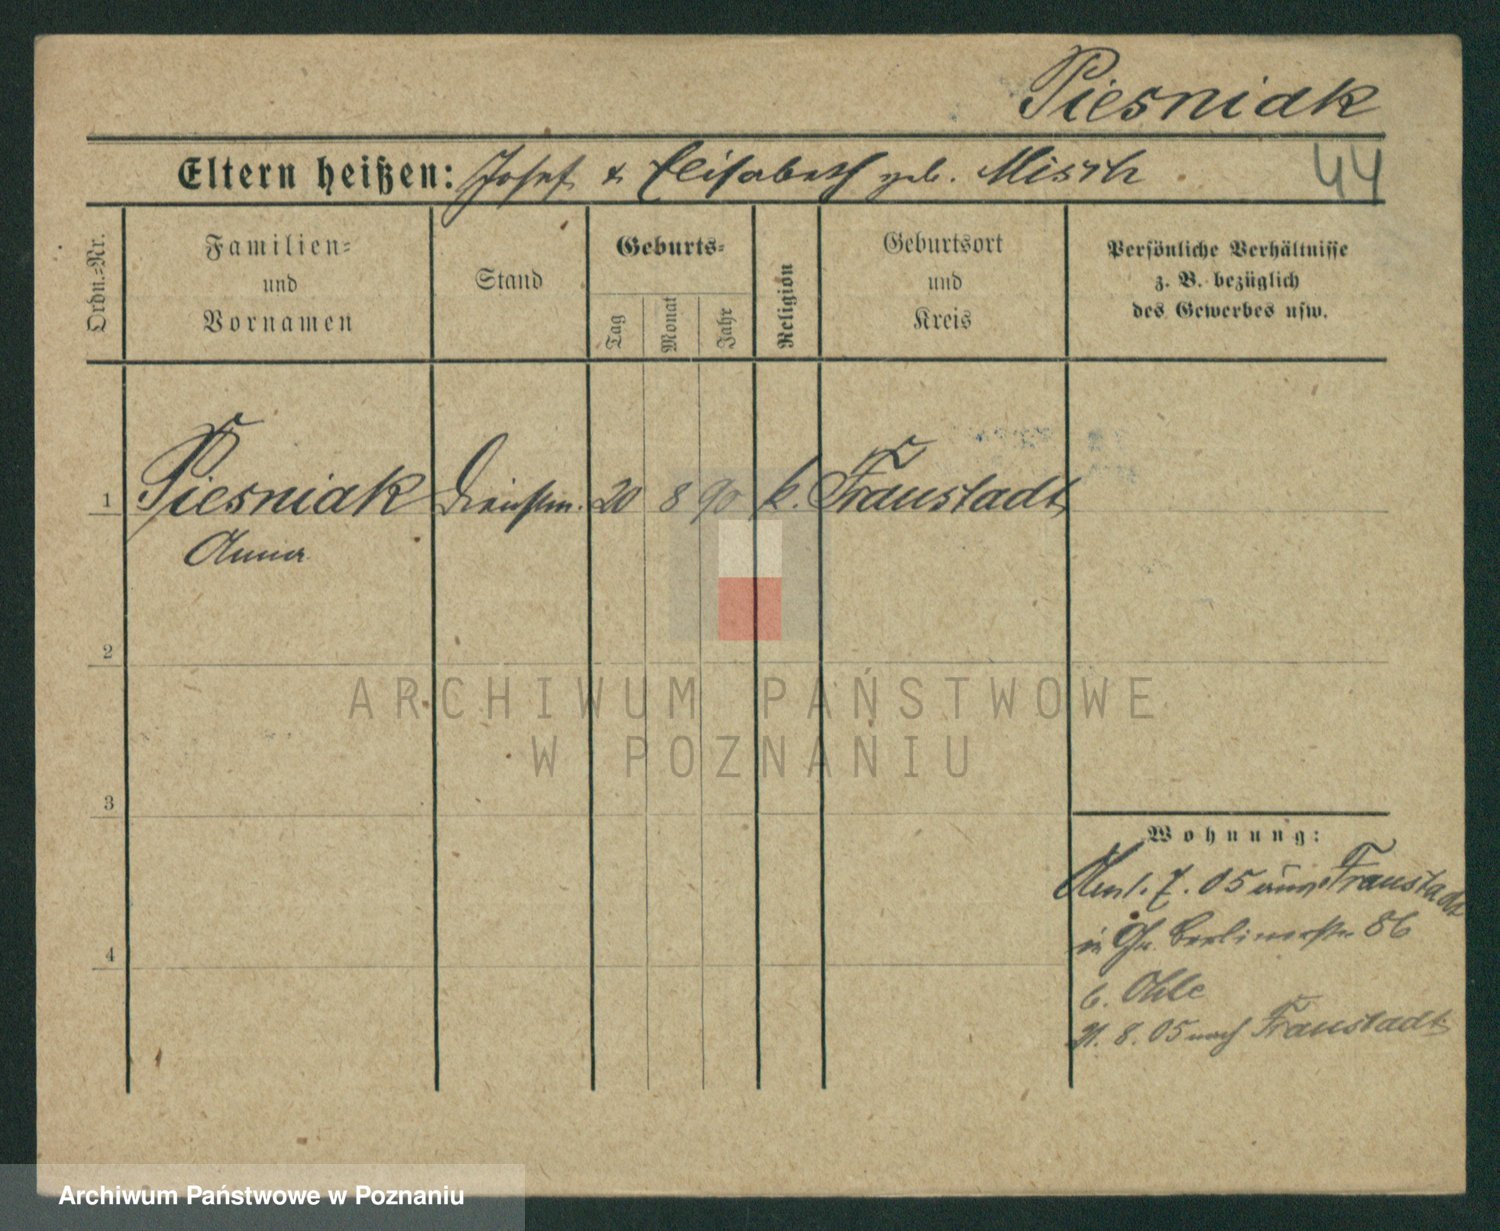 Piesniak
Eltern heißen: Josef & Elisabeth geb. Misch
44
Ordn.-Nr.
Familien-
und
Vornamen
Stand
Geburts-
Tag
Monat
Jahr
Religion
Geburtsort
und
Kreis
Persönliche Verhältnisse
z. B. bezüglich
des Gewerbes usw.
1
Piesniak Dienstm. 20 8 90 k. Fraustadt
Anna
2
ARCHIWUM PAŃSTWOWE
W POZNANIU
3
Wohnung:
7. 05 Fraustadt
in Gr. Berlinerstr. 86
b. Ohle
4
8. 05 nach Fraustadt
Archiwum Państwowe w Poznaniu